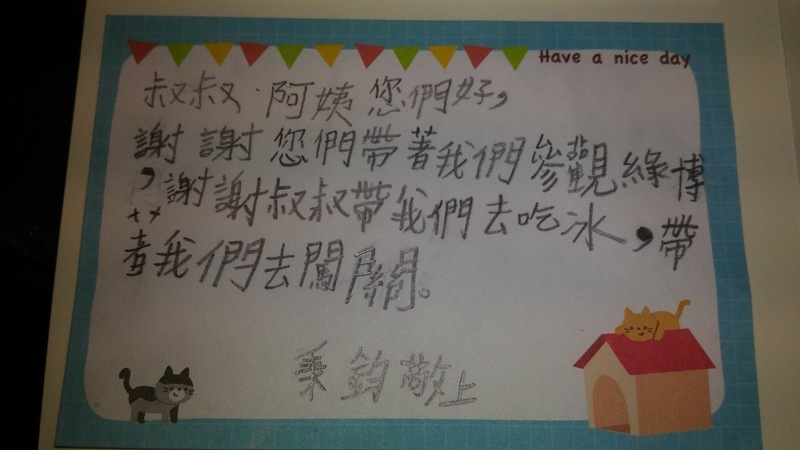 Have a nice day
叔叔、阿姨您們好，
謝謝您們帶著我們參觀綠博
，謝謝叔叔帶我們去吃冰，帶
著我們去闖關。
秉鈞敬上